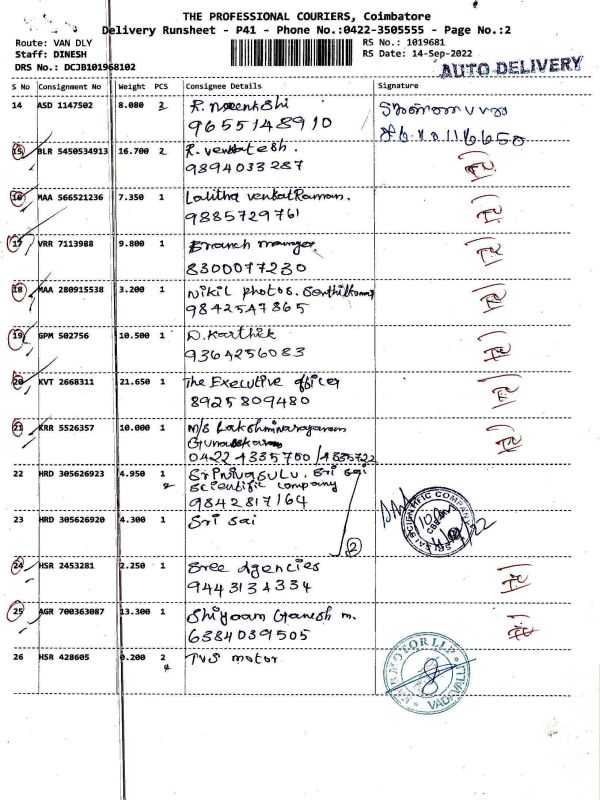 THE PROFESSIONAL COURIERS, Coimbatore
Delivery Runsheet - P41 - Phone No.:0422-3505555 - Page No.:2
Route: VAN DLY
Staff: DINESH
DRS No.: DCJB101968102
RS No.: 1019681
RS Date: 14-Sep-2022
AUTO DELIVERY
S No Consignment No Weight PCS Consignee Details Signature
14 ASD 1147502 8.080 2 R. Meenkshi
9655148910
15 BLR 5450534913 16.700 2 R. Venkatesh.
9894033287
16 MAA 566521236 7.350 1 Lalitha Venkat Raman.
9885729761
17 VRR 7113988 9.800 1 Branch manager
8300077230
18 MAA 280915538 3.200 1 Nikil photos.
9842547865
19 GPM 502756 10.500 1 D. Karthik
9364256083
20 KVT 2668311 21.650 1 The Executive officer
8925809480
21 KRR 5526357 10.000 1 M/S Lakshminarayanan
0422 4335700 / 4335722
22 HRD 305626923 4.950 1 Srinivasulu. Sri Sai
2 Scientific company
9842817164
23 HRD 305626920 4.300 1 Sri Sai
2
SRI SAI SCIENTIFIC COMPANY
24 HSR 2453281 2.250 1 Sree Agencies
9443134334
25 AGR 700363087 13.300 1 Ganesh m.
6384039505
26 HSR 428605 0.200 2 TVS motor
MOTOR LLP
VADAVALLI